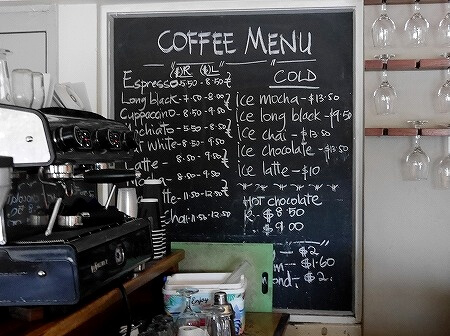 COFFEE MENU
$R $L
Espresso 5.50 - 6.50
Long black - 7.50 - 8.00
Cuppaccino - 8.50 - 9.50
chiato - 5.50 - 8.50
white - 8.50 - 9.50
Latte - 8.50 - 9.50
8.50 - 9.50
te - 11.50 - 12.50
Chai - 11.50 - 12.50
COLD
Ice mocha - $13.50
Ice long black - $9.50
Ice chai - $13.50
Ice chocolate - $13.50
Ice latte - $10
HOT chocolate
R - $8.50
$9.00
- $2
- $1.60
mond - $2